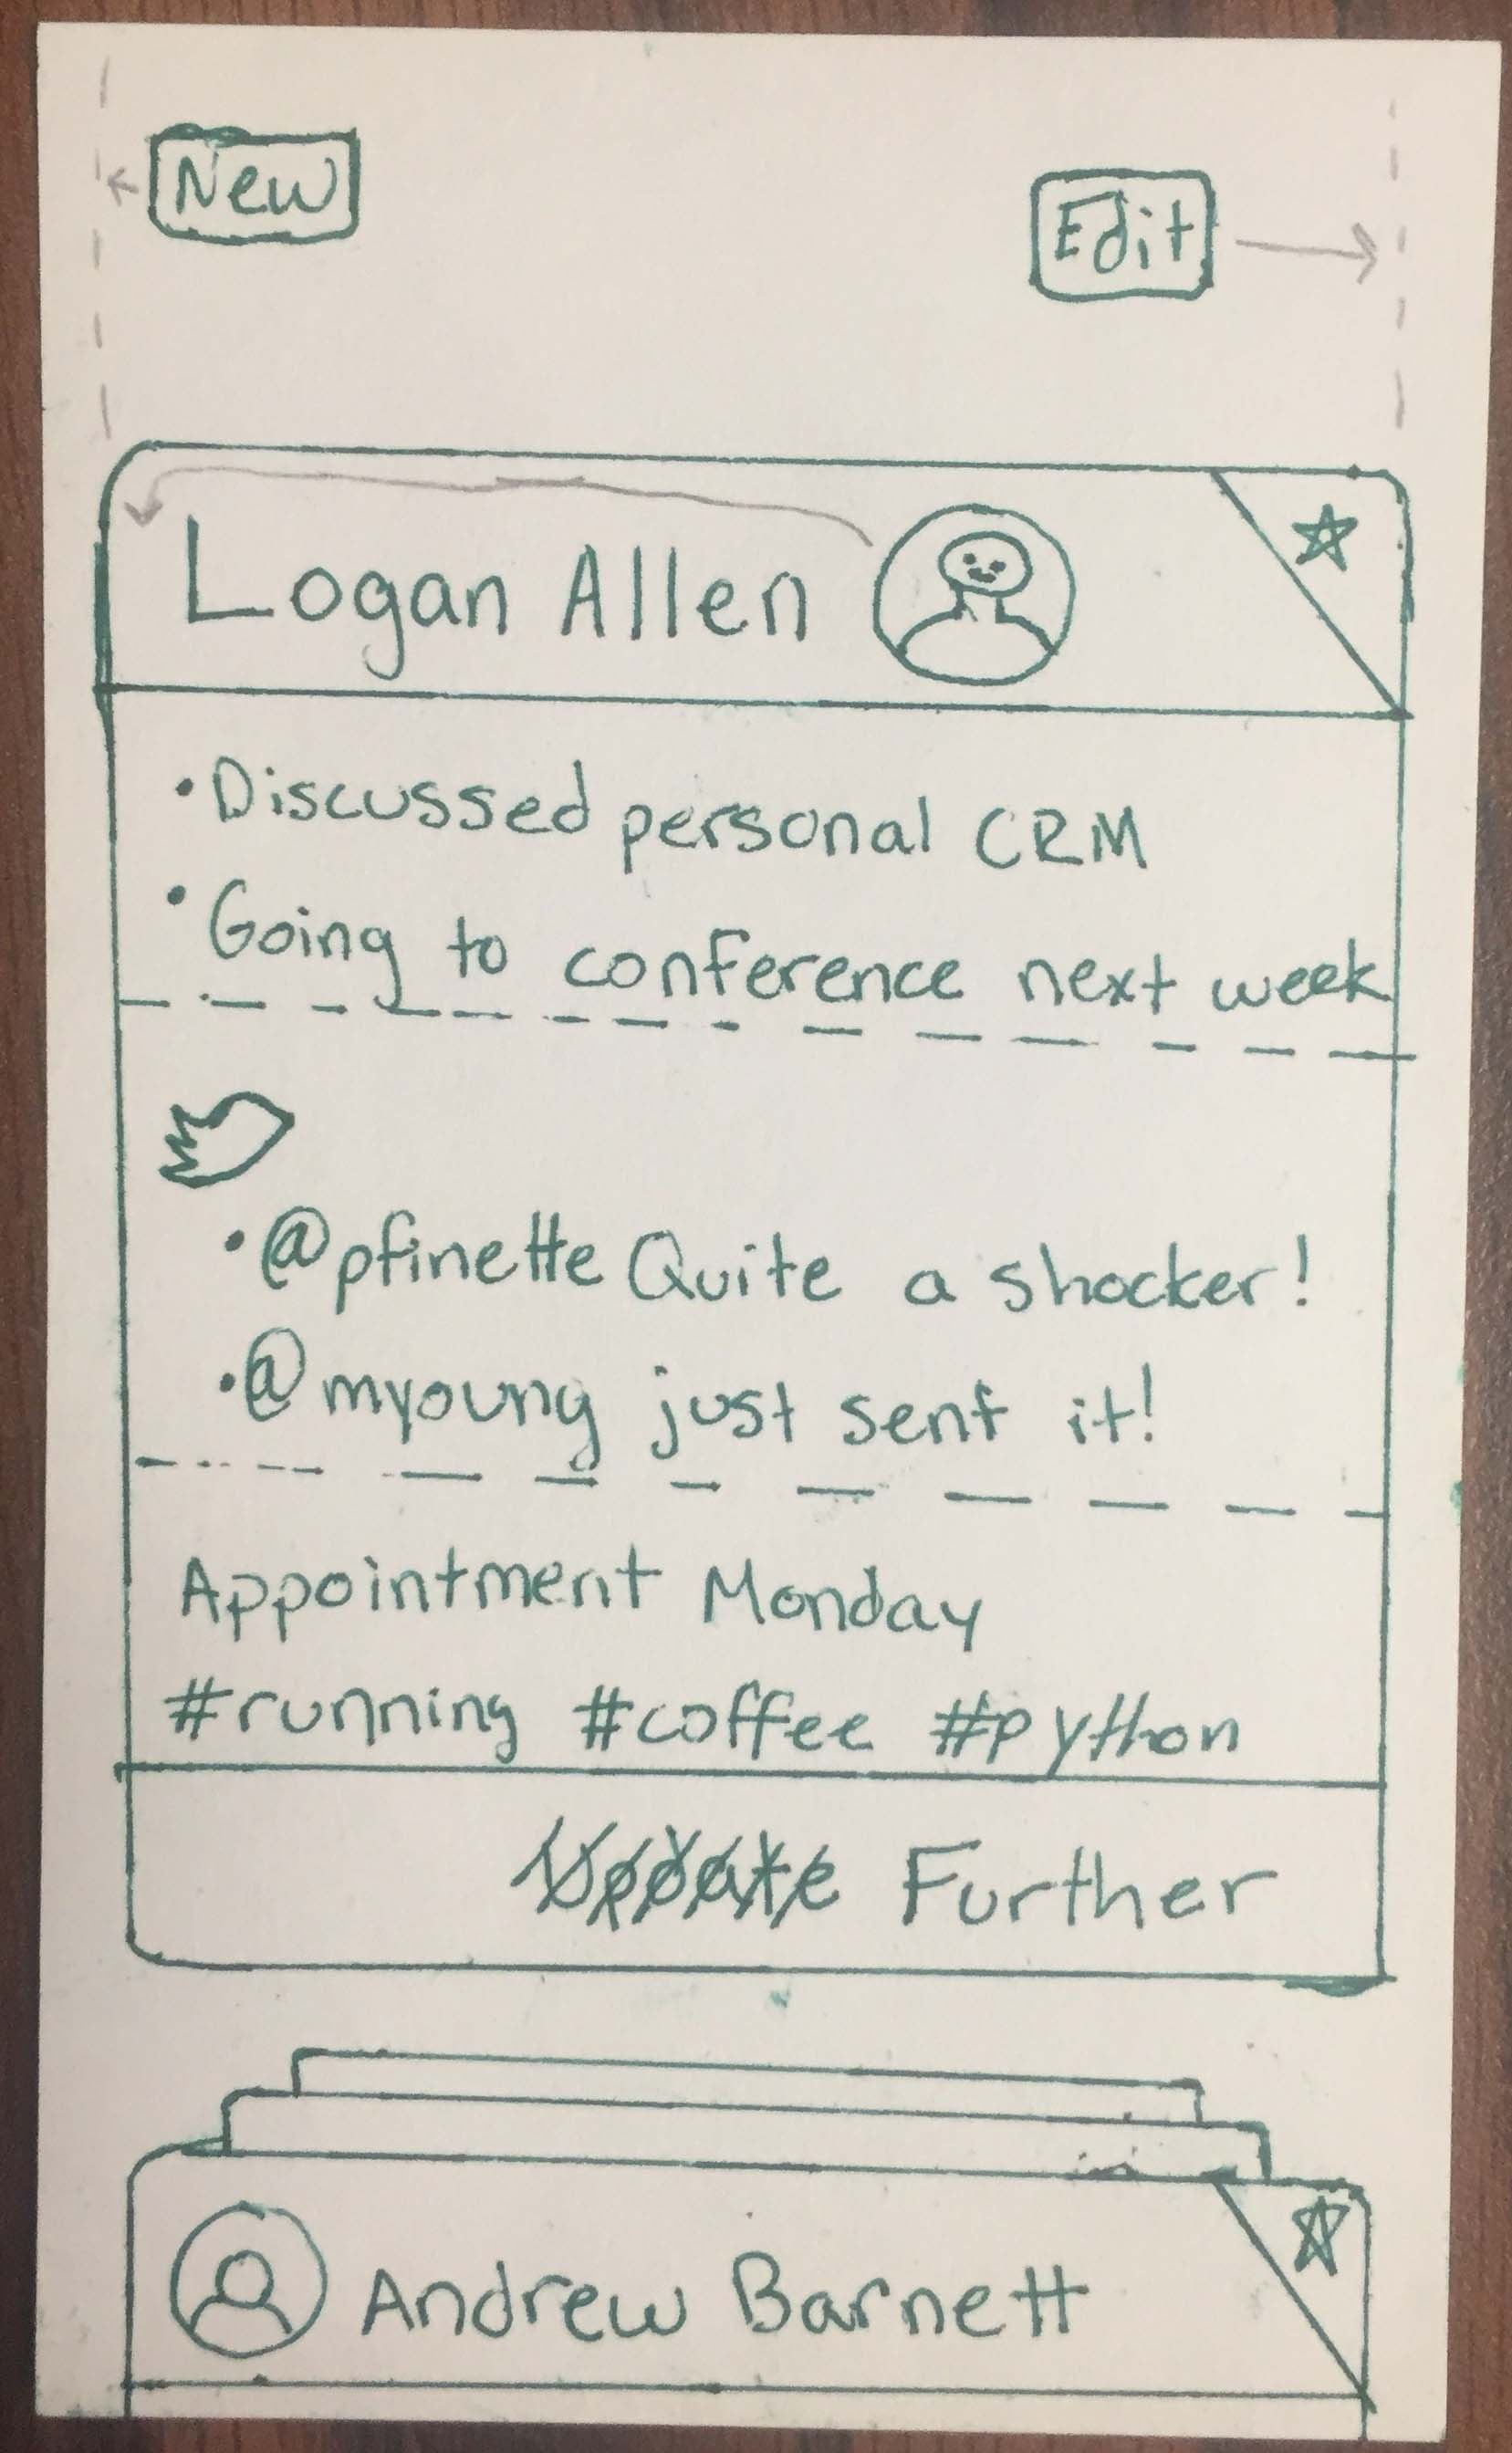 New
Edit
Logan Allen
•Discussed personal CRM
•Going to conference next week
•@pfinette Quite a shocker!
•@myoung just sent it!
Appointment Monday
#running #coffee #python
Update Further
Andrew Barnett